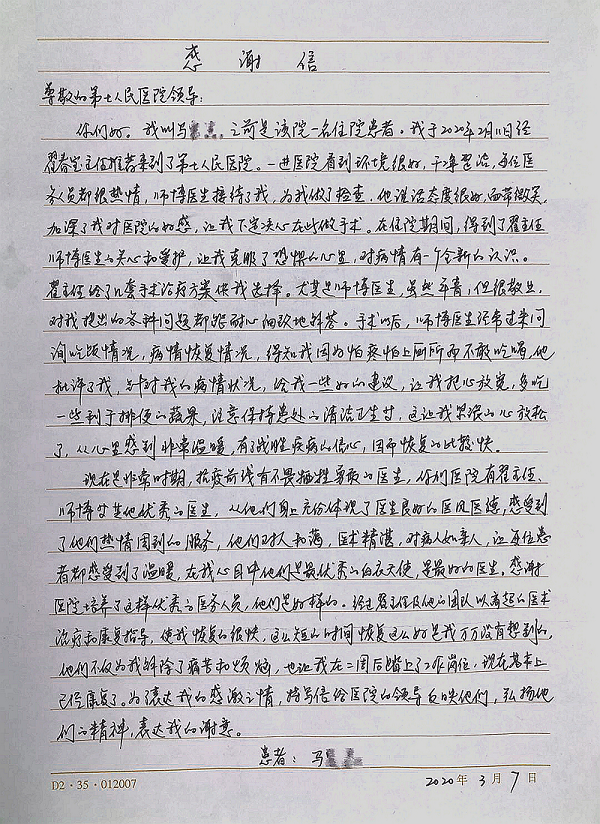 感谢信
尊敬的第七人民医院领导:
你们好。我叫马 之前是该院一名住院患者。我于2020年2月11日经
翟春宝主任推荐来到了第七人民医院。一进医院看到环境很好,干净整洁,每位医
务人员都很热情,师博医生接待了我,为我做了检查,他说话态度很好,面带微笑,
加深了我对医院的好感,让我下定决心在此做手术。在住院期间,得到了翟主任
师博医生的关心和爱护,让我克服了恐惧的心里,对病情有一个全新的认识。
翟主任给了几套手术治疗方案供我选择。尤其是师博医生,虽然年青,但很敬业,
对我提出的各种问题都能耐心细致地解答。手术以后,师博医生经常过来问
询吃饭情况,病情恢复情况,得知我因为怕疼怕上厕所而不敢吃喝,他
批评了我,针对我的病情状况,给我一些好的建议,让我把心放宽,多吃
一些利于排便的蔬果,注意保持患处的清洁卫生等,这让我紧张的心放松
了,从心里感到非常温暖,有了战胜疾病的信心,因而恢复的比较快。
现在是非常时期,抗疫前线有不畏牺牲勇敢的医生,你们医院有翟主任、
师博等其他优秀的医生,从他们身上充份体现了医生良好的医风医德,感受到
了他们热情周到的服务,他们对人和蔼,医术精湛,对病人如亲人,让每位患
者都感受到了温暖,在我心目中他们是最优秀的白衣天使,是最好的医生。感谢
医院培养了这样优秀的医务人员,他们是好样的。经过翟主任及他的团队以高超的医术
治疗和康复指导,使我恢复的很快,这么短的时间恢复这么好是我万万没有想到的,
他们不仅为我解除了病苦和烦恼,也让我在二周后踏上了工作岗位,现在基本上
已经康复了。为了表达我的感激之情,特写信给医院的领导反映他们,弘扬他
们的精神,表达我的谢意。
患者:马
D2·35·012007 2020年3月7日